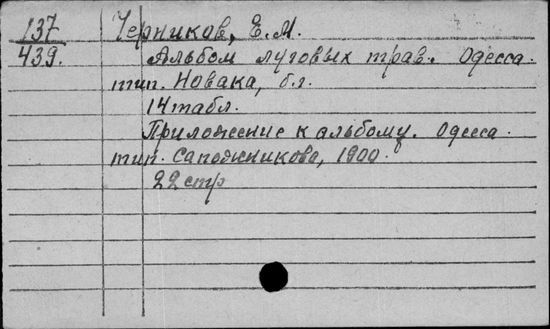 137 Черников, Е. М.
439. Альбом луговых трав. Одесса.
тип. Новака, б.г.
14 табл.
Приложение к альбому. Одесса.
тип. Сапожникова, 1900.
22 стр